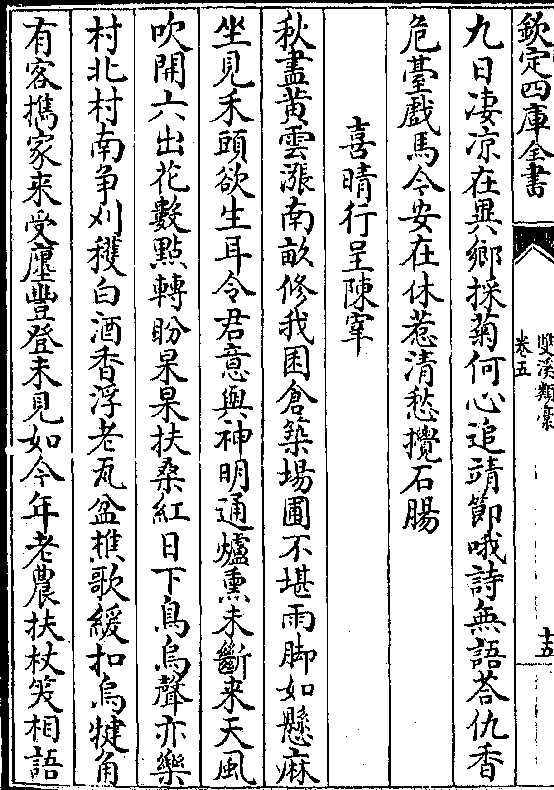 欽定四庫全書
雙溪類藁
卷五
十五
九日凄凉在異鄉採菊何心追靖節哦詩無語荅仇香
危臺戲馬今安在休惹清愁攪石腸
喜晴行呈陳宰
秋盡黄雲漲南畝修我囷倉築場圃不堪雨脚如懸麻
坐見禾頭欲生耳令君意與神明通爐熏未斷来天風
吹開六出花數點轉盼杲杲扶桑紅日下鳥烏聲亦樂
村北村南争刈穫白酒香浮老瓦盆樵歌緩扣烏犍角
有客擕家来受廛豐登未見如今年老農扶杖笑相語